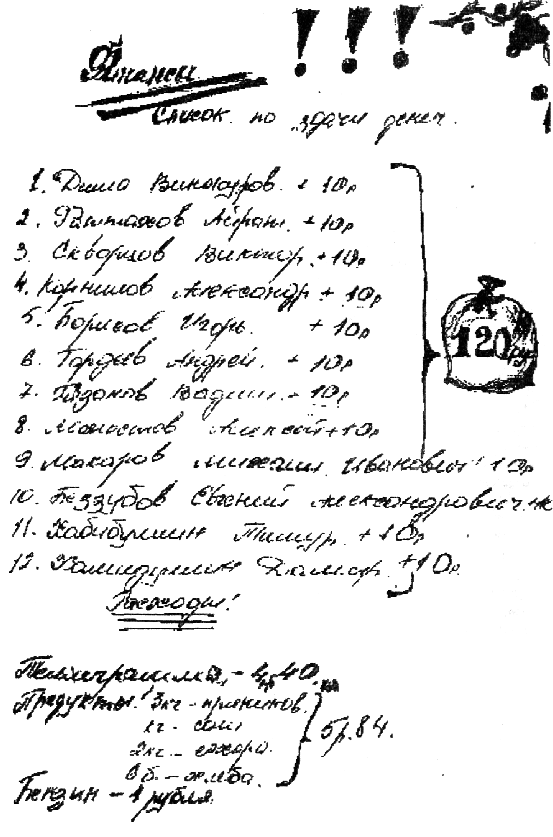 Финансы !!!
Список по здачи денег.
1. Дима Винокуров + 10р
2. Айрат. + 10р
3. Скворцов Виктор. + 10р
4. Корнилов Александр + 10р
5. Борисов Игорь. + 10р
6. Гордеев Андрей. + 10р
7. Вадим. - 10р
8. Алексей + 10р
9. Макаров Михаил Иванович 10р
10. Беззубов Евгений Александрович
11. Хабибуллин Тимур. + 10р
12. Дамир. + 10р.
120 ру
Расходы!
Телеграмма, - 4р 40
Продукты! 3кг - пряников.
кг - соли
2кг. - сахара.
8 б. - хлеба.
5р. 84.
Бензин - 1 рубля